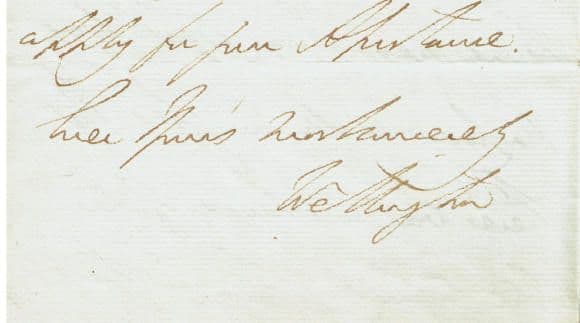 apply for your Assistance.
Ever Yours most sincerely
Wellington